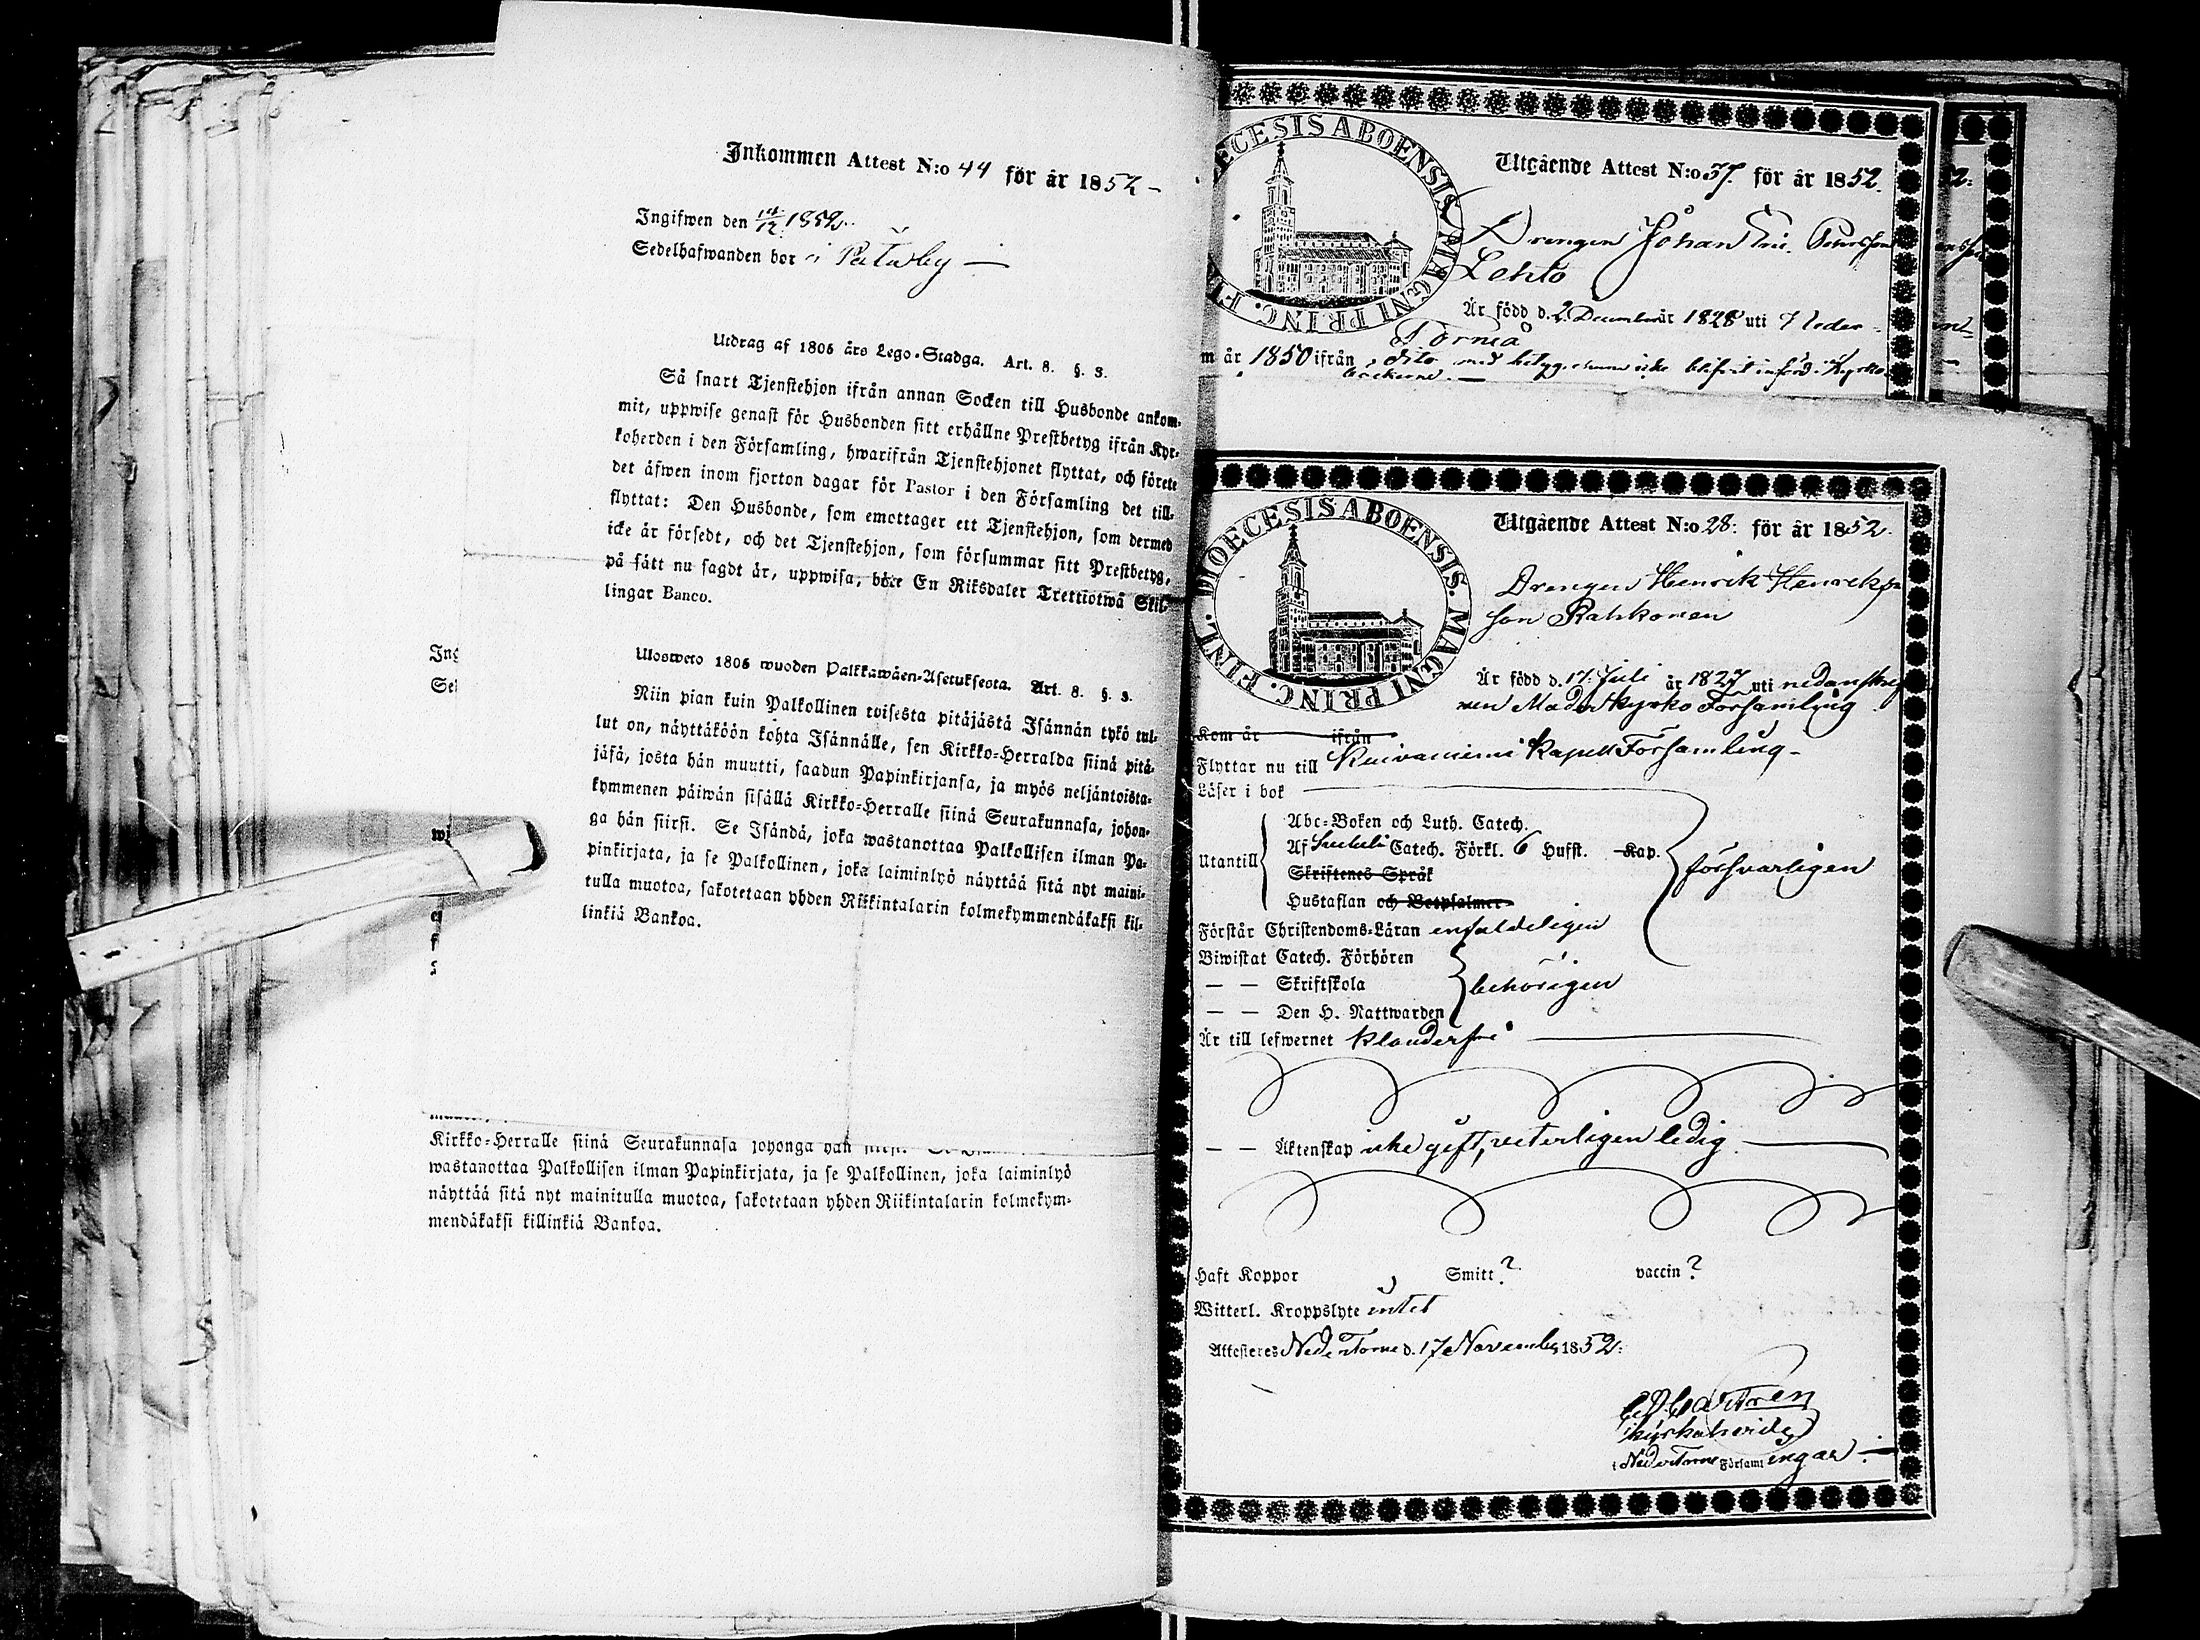 Inkommen Attest N:o 44 för år 1852 –
Ingifwen den 1852.
Sedelhafwanden bor i
Utdrag af 1805 års Lego-Stadga. Art. 8. §. 3.
Så snart Tjenstehjon ifrån annan Socken till Husbonde ankom-
mit, uppwise genast för Husbonden sitt erhållne Prestbetyg ifrån Kyr-
koherden i den Församling, hwarifrån Tjenstehjonet flyttat, och förete
det äfwen inom fjorton dagar för Pastor i den Församling det till-
flyttat: Den Husbonde, som emottager ett Tjenstehjon, som dermed
icke är försedt, och det Tjenstehjon, som försummar sitt Prestbetyg,
på sätt nu sagdt är, uppwisa, böte En Riksdaler Trettiotwå Skil-
lingar Banco.
Ulosweto 1805 wuoden Palkkawäen-Asetuksesta. Art. 8. §. 3.
Niin pian kuin Palkollinen toisesta pitäjästä Isännän tykö tul-
lut on, näyttäköön kohta Isännälle, sen Kirkko-Herralda siinä pitä-
jäsä, josta hän muutti, saadun Papinkirjansa, ja myös neljäntoista-
kymmenen päiwän sisällä Kirkko-Herralle siinä Seurakunnasa, johon-
ga hän siirsi. Se Isändä, joka wastanottaa Palkollisen ilman Pa-
pinkirjata, ja se Palkollinen, joka laiminlyö näyttää sitä nyt maini-
tulla muotoa, sakotetaan yhden Riikintalarin kolmekymmendäkaksi kil-
linkiä Bankoa.
Ing
Sel
wi
Kirkko-Herralle siinä Seurakunnasa johonga hän siirsi.
wastanottaa Palkollisen ilman Papinkirjata, ja se Palkollinen, joka laiminlyö
näyttää sitä nyt mainitulla muotoa, sakotetaan yhden Riikintalarin kolmekym-
mendäkaksi killinkiä Bankoa.
ECESIS ABOENSIS. MAGNI PRINC. FI
Utgående Attest N:o 37. för år 1852.
Drengen Johan Eric Petersson
Lehto
Är född d. 2. December år 1828 uti Neder-
Torneå
m år 1850 ifrån dito med betyg, som icke blifvit införd i Kyrko
böckerne. —
DIOECESIS ABOENSIS. MAGNI PRINC. FINL.
Utgående Attest N:o 28: för år 1852.
Drengen Henrik Henriks
son Rahkonen
Är född d. 17. Juli år 1827 uti nedanskref
ven Moderkyrko Församling
Kom år ifrån
Flyttar nu till Kuivaniemi Kapell Församling –
Läser i bok
Abc-Boken och Luth. Catech.
Utantill
Af Svebeli Catech. Förkl. 6 Hufst. Kap.
försvarligen
Skriftenes Språk
Hustaflan och Botpsalmer
Förstår Christendoms-Läran enfaldeligen
Biwistat Catech. Förhören
— — Skriftskola
behörigen
— — Den H. Nattwarden
Är till lefwernet klanderfri
— — Äktenskap icke gift, veterligen ledig
Haft Koppor Smitt? vaccin?
Witterl. Kroppslyte intet
Attesteres NederTorne d. 17 November 1852:
Castren
Kyrkoherde
i NederTorne Församlingar. —